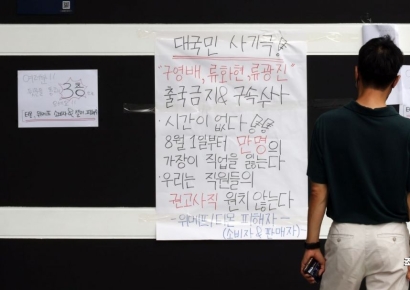 대국민 사기극
"구영배, 류화현, 류광진"
출국금지 & 구속수사
· 시간이 없다
8월 1일부터 만명의
가장이 직업을 잃는다
· 우리는 직원들의
권고사직 원치 않는다
- 위메프/티몬 피해자 -
(소비자 & 판매자)